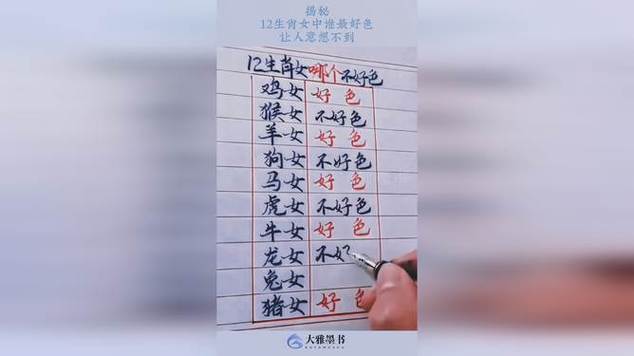 揭秘
12生肖女中谁最好色
让人意想不到
12生肖女哪个不好色
鸡女 好色
猴女 不好色
羊女 好色
狗女 不好色
马女 好色
虎女 不好色
牛女 好色
龙女 不好
兔女
猪女 好色
大雅墨书